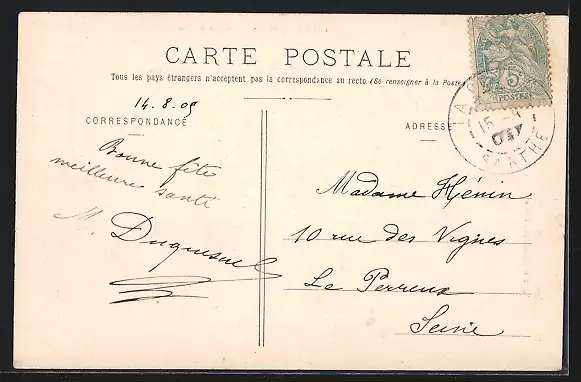 CARTE POSTALE
Tous les pays étrangers n'acceptent pas la correspondance au recto (Se renseigner à la Poste
14.8.05
CORRESPONDANCE
ADRESSE
Bonne fête
meilleure santé
M. Duquesnel
Madame Hénin
10 rue des Vignes
Le Perreux
Seine
5c
POSTES
15
SARTHE